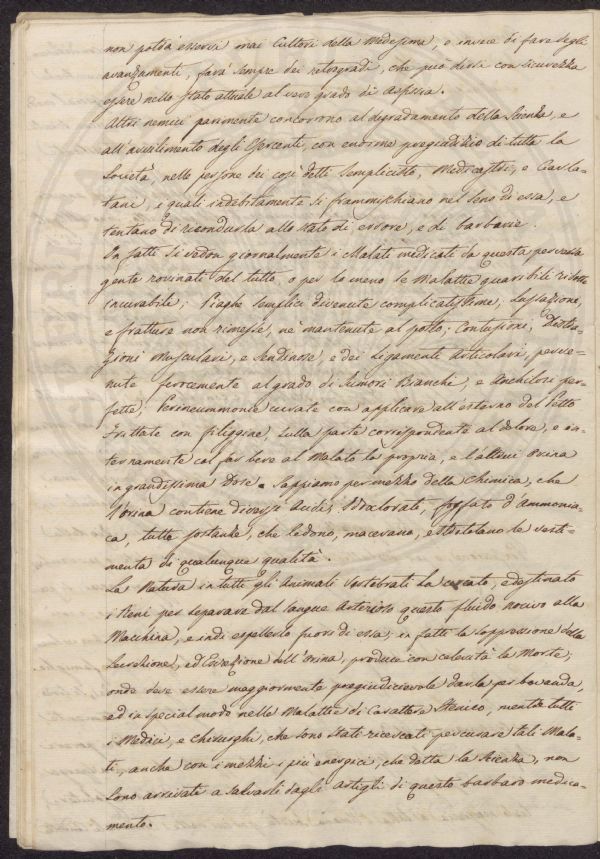 non potrà esservi mai Cultori della Medesima, e invece di fare degli
avanzamenti, farà sempre dei retrogradi, che può dirsi con sicurezza
essere nello stato attuale al vero grado di Asfissia.
Altri nemici parimente concorrono al degradamento della Scienza, e
all'avvilimento degli Esercenti, con enorme pregiudizio di tutta la
Società, nelle persone dei così detti Semplicisti, Medicastri, e Ciarla-
tani, i quali indebitamente si frammischiano nel seno di essa, e
tentano di ricondurla allo stato di errore, e di barbarie.
In fatti si vedon giornalmente i Malati medicati da questa perversa
gente rovinati del tutto o per lo meno le Malattie guaribili ridotte
incurabili; Piaghe semplici divenute complicatissime; Lussazione,
e fratture non rimesse, nè mantenute al posto; Contusioni, Distra-
zioni Muscolari, e Tendinose, e dei Ligamenti Articolari, perve-
nute ferocemente al grado di Tumori Bianchi, e Anchilosi per-
fette; Perineummonie curate con applicare all'esterno del Petto
Frittate con filiggine, sulla parte corrispondente al dolore, e in-
ternamente col far bere al Malato la propria, e l'altrui Orina
in grandissima dose. Sappiamo per mezzo della Chimica, che
l'Orina contiene diversi Acidi, Idroclorato, fosfato d'Ammonia-
ca, tutte sostanze, che ledono, macerano, e stritolano le vesti-
menta di qualunque qualità.
La Natura in tutti gli Animali Vertebrati ha creato, e destinato
i Reni per separare dal sangue Arterioso questo fluido nocivo alla
Macchina, e indi espellerlo fuori di essa; in fatti la soppressione della
Secrezione, ed Escrezione dell'Orina, produce con celerità la Morte;
onde deve essere maggiormente pregiudicievole darla per bevanda,
ed in special modo nelle Malattie di Carattere Stenico, mentre tutti
i Medici, e Chirurghi, che sono stati ricercati per curare tali Mala-
ti, anche con i mezzi i più energici, che detta la Scienza, non
sono arrivati a salvarli dagli Artigli di questo barbaro medica-
mento.